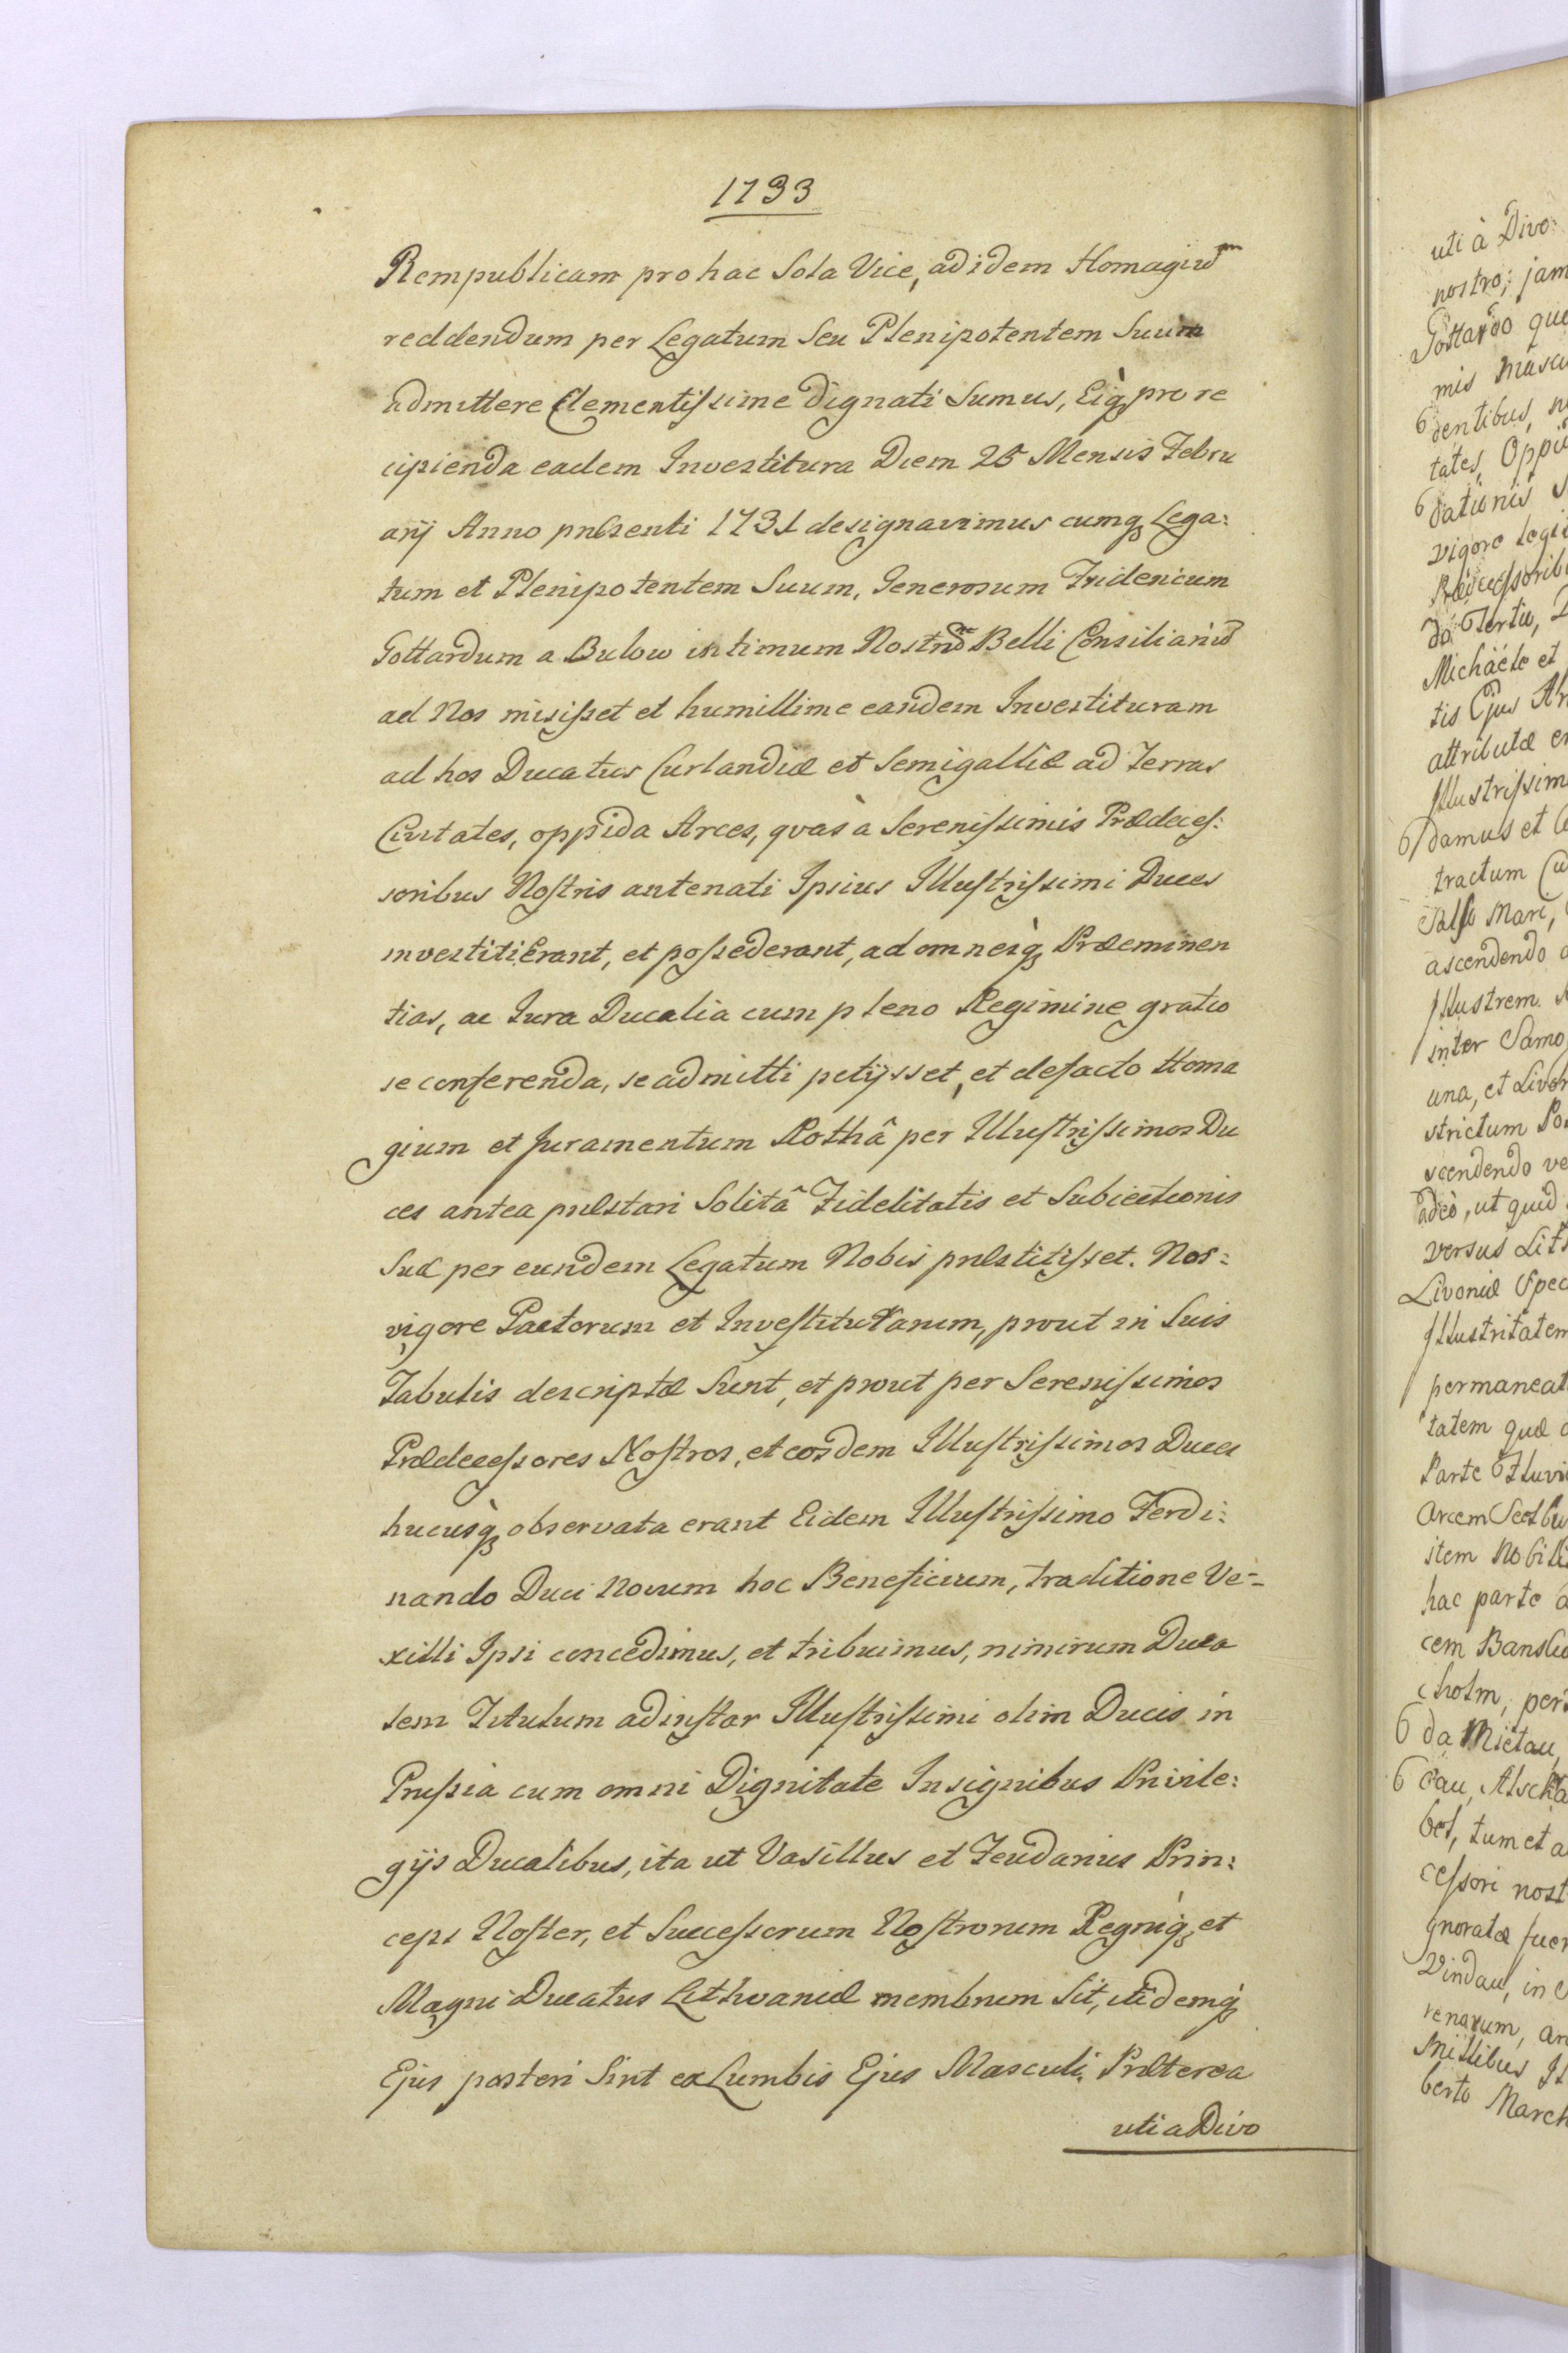 1733
Rempublicam pro hac Sola Vice, ad idem Homagiū
reddendum per Legatum Seu Plenipotentem Suum
admittere Clementissime dignati Sumus, Eiq̀ꝫ pro re
cipienda eadem Investitura Diem 25 Mensis Febru
arij Anno pnꝛæsenti 1731 designavimus cumqꝫ Lega:
tum et Plenipotentem Suum, Generosum Fridericum
Gottardum a Bulow intimum Nostrū Belli Consiliariū
ad Nos misisset et humillime eandem Investituram
ad hos Ducatus Curlandiæ et Semigalliæ ad Terras
Civitates, oppida Arces, qvas à Serenissimis Prædeces:
soribus Nostris antenati Ipsius Illustrissimi Duces
investiti Erant, et possederant, ad omnesq̀ꝫ Præeminen
tias, ac Iura Ducalia cum pleno Regimine gratio
se conferenda, se admitti petijsset, et defacto Homa
gium et Juramentum Rothâ per Illustrissimos Du
ces antea præstari Solitâ Fidelitatis et Subiectionis
Suæ per eundem Legatum Nobis præstitisset. Nos=
vigore Pactorum et Investiturarum, prout in Suis
Tabulis descriptæ Sunt, et prout per Serenissimos
Prædecessores Nostros, et eosdem Illustrissimos Duces
hucusq̀ꝫ observata erant Eidem Illustrissimo Ferdi:
nando Duci Novum hoc Beneficium, traditione Ve=
xilli Ipsi concedimus, et tribuimus, nimirum Duca
lem Titulum ad instar Illustrissimi olim Ducis in
Prussia cum omni Dignitate Insignibus Privile:
gijs Ducalibus, ita ut Vasillus et Feudarius Prin:
ceps Noster, et Successorum Nostrorum Regniq̀ꝫ et
Magni Ducatus Lithvaniæ membrum Sit, itidemq̀ꝫ
Ejus posteri Sint ex Lumbis Ejus Masculi. Præterea
uti a Divo
uti à Divo:
nostro; jam
Gottardo que
mis Mascu
dentibus,
tates, Oppi
dationis
vigore legi
Prædecessorib
do Tertio,
Michaele et
tis Ejus
attributæ
Illustrissim
damus et
tractum
Salso Mari,
ascendendo
Illustrem
inter Samo
una, et Livon
strictum
scendendo ve
adeò, ut quid
versus Lit
Livoniæ Spec
Illustritatem
permaneat
tatem quæ
Parte Fluvi
Arcem Seelbu
item Nobili
hac parte
cem Bansko
cholm, per
da Mietau,
bet, tum et a
cessori nost
gnoratæ fuer
Vindau, in
renarum,
millibus
berto March